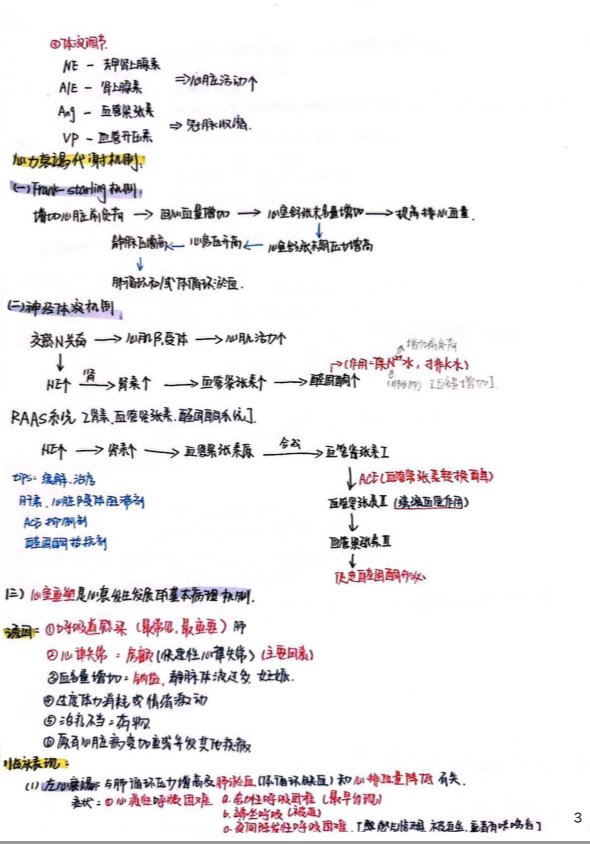 ④体液调节
NE - 去甲肾上腺素
A/E - 肾上腺素 ⇒心脏活动↑
Ang - 血管紧张素
VP - 血管升压素 ⇒ 冠脉收缩.
心力衰竭代谢机制:
(一)Frank-starling机制
增加心脏前负荷 → 回心血量增加 → 心室舒张末容量增加 → 提高排心血量.
静脉压增高 ← 心房压升高 ← 心室舒张末期压力增高
肺循环和/或体循环淤血.
(二)神经体液机制
交感N兴奋 → 心肌β受体 → 心肌活力↑
增加前负荷
→(作用-保Na+水,排K水)
NE↑ 肾→ 肾素↑ → 血管紧张素↑ → 醛固酮↑ 容量增加]
RAAS系统 [肾素.血管紧张素.醛固酮系统].
NE↑ → 肾素↑ → 血管紧张素原 合成→ 血管紧张素I
tips: 缓解.治疗
ACE(血管紧张素转换酶)
β受体阻滞剂
血管紧张素Ⅱ (缩血管作用)
ACE抑制剂
醛固酮拮抗剂
血管紧张素Ⅲ
促使醛固酮分泌
(三)心室重塑是心衰发生发展的基本病理机制.
诱因: ①呼吸道感染 (最常见,最重要) 肺
②心律失常 = 房颤(快速性心律失常) (主要因素)
③血容量增加 = 钠盐、静脉体液过多、妊娠.
④过度体力消耗或情绪激动
⑤治疗不当 = 药物
⑥原有心脏病变加重或并发其他疾病
临床表现:
(1) 左心衰竭: 与肺循环压力增高及肺淤血(体循环缺血) 和心排血量降低有关.
症状: ①心源性呼吸困难 a.劳力性呼吸困难 (最早出现)
b.端坐呼吸 (被迫)
c.夜间阵发性呼吸困难. [
3